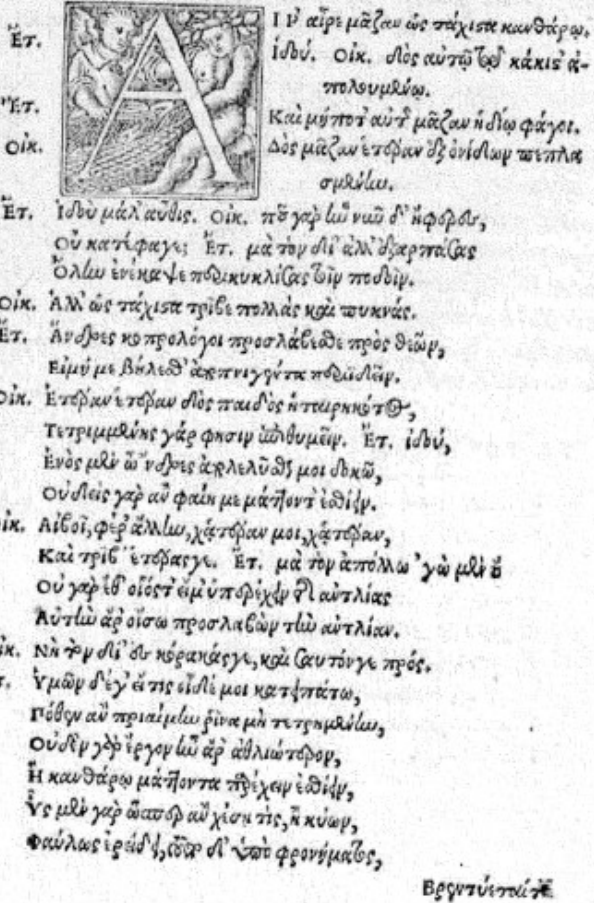 ΑΙΡ' αἶρε μᾶζαν ὡς τάχιστα κανθάρῳ.
Ἕτ. Ἰδού. Οἰκ. δὸς αὐτῷ τῷ κάκιστ' ἀ-
πολουμένῳ.
Ἕτ. Καὶ μήποτ' αὐτῆς μᾶζαν ἡδίω φάγοι.
Οἰκ. Δὸς μᾶζαν ἑτέραν ἐξ ὀνίδων πεπλα
σμένην.
Ἕτ. Ἰδοὺ μάλ' αὖθις. Οἰκ. ποῦ γὰρ ἣν νῦν δ' ἤφερες,
Οὐ κατέφαγε; Ἕτ. μὰ τὸν δί' ἀλλ' ἐξαρπάσας
Ὅλην ἐνέκαψε περικυκλίσας τοῖν ποδοῖν.
Οἰκ. Ἀλλ' ὡς τάχιστα τρῖβε πολλὰς καὶ πυκνάς.
Ἕτ. Ἄνδρες κοπρολόγοι προσλάβεσθε πρὸς θεῶν,
Εἰ μή με βούλεσθ' ἀποπνιγέντα περιϊδεῖν.
Οἰκ. Ἑτέραν ἑτέραν δὸς παιδὸς ἡταιρηκότος,
Τετριμμένης γάρ φησιν ἐπιθυμεῖν. Ἕτ. ἰδού,
Ἑνὸς μὲν ὦ 'νδρες ἀπολελῦσθαί μοι δοκῶ,
Οὐδεὶς γὰρ ἂν φαίη με μάττοντ' ἐσθίειν.
Οἰκ. Αἰβοῖ, φέρ' ἄλλην, χἀτέραν μοι, χἀτέραν,
Καὶ τρῖβ' ἑτέρας γε. Ἕτ. μὰ τὸν ἀπόλλω 'γὼ μὲν οὔ
Οὐ γὰρ ἔθ' οἷός τ' εἴμ' ὑπερέχειν τῆς ἀντλίας
Αὐτὴν ἄρ' οἴσω προσλαβὼν τὴν ἀντλίαν.
Οἰκ. Νὴ τὸν δί' ἐς κόρακάς γε, καὶ σαυτόν γε πρός.
Ἕτ. Ὑμῶν δέ γ' εἴ τις οἶδέ μοι κατειπάτω,
Πόθεν ἂν πριαίμην ῥῖνα μὴ τετρημένην,
Οὐδὲν γὰρ ἔργον ἦν ἄρ' ἀθλιώτερον,
Ἢ κανθάρῳ μάττοντα παρέχειν ἐσθίειν,
Ὗς μὲν γὰρ ὥσπερ ἂν χέσῃ τις, ἢ κύων,
Φαύλως ἐρείδει, τοῦτο δ' ὑπὸ φρονήματος,